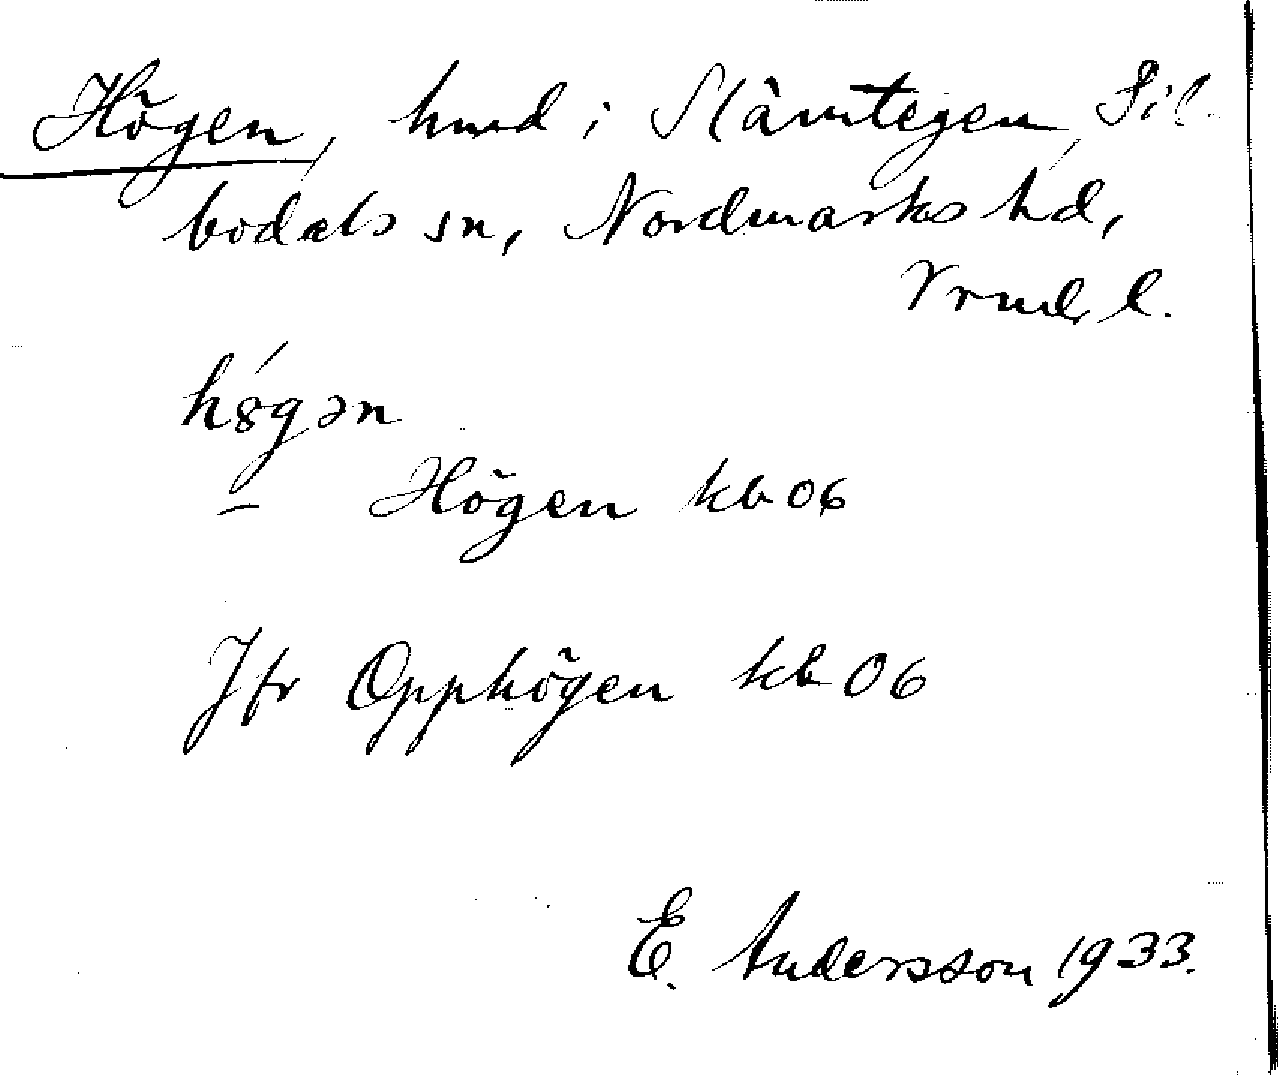 Högen, hmd i Slämtegen, Sil-
bodals sn, Nordmarks hd,
Vrml. l.
hø̀gən
– Högen kb 06
Jfr Opphögen kb 06
E. Andersson 1933.